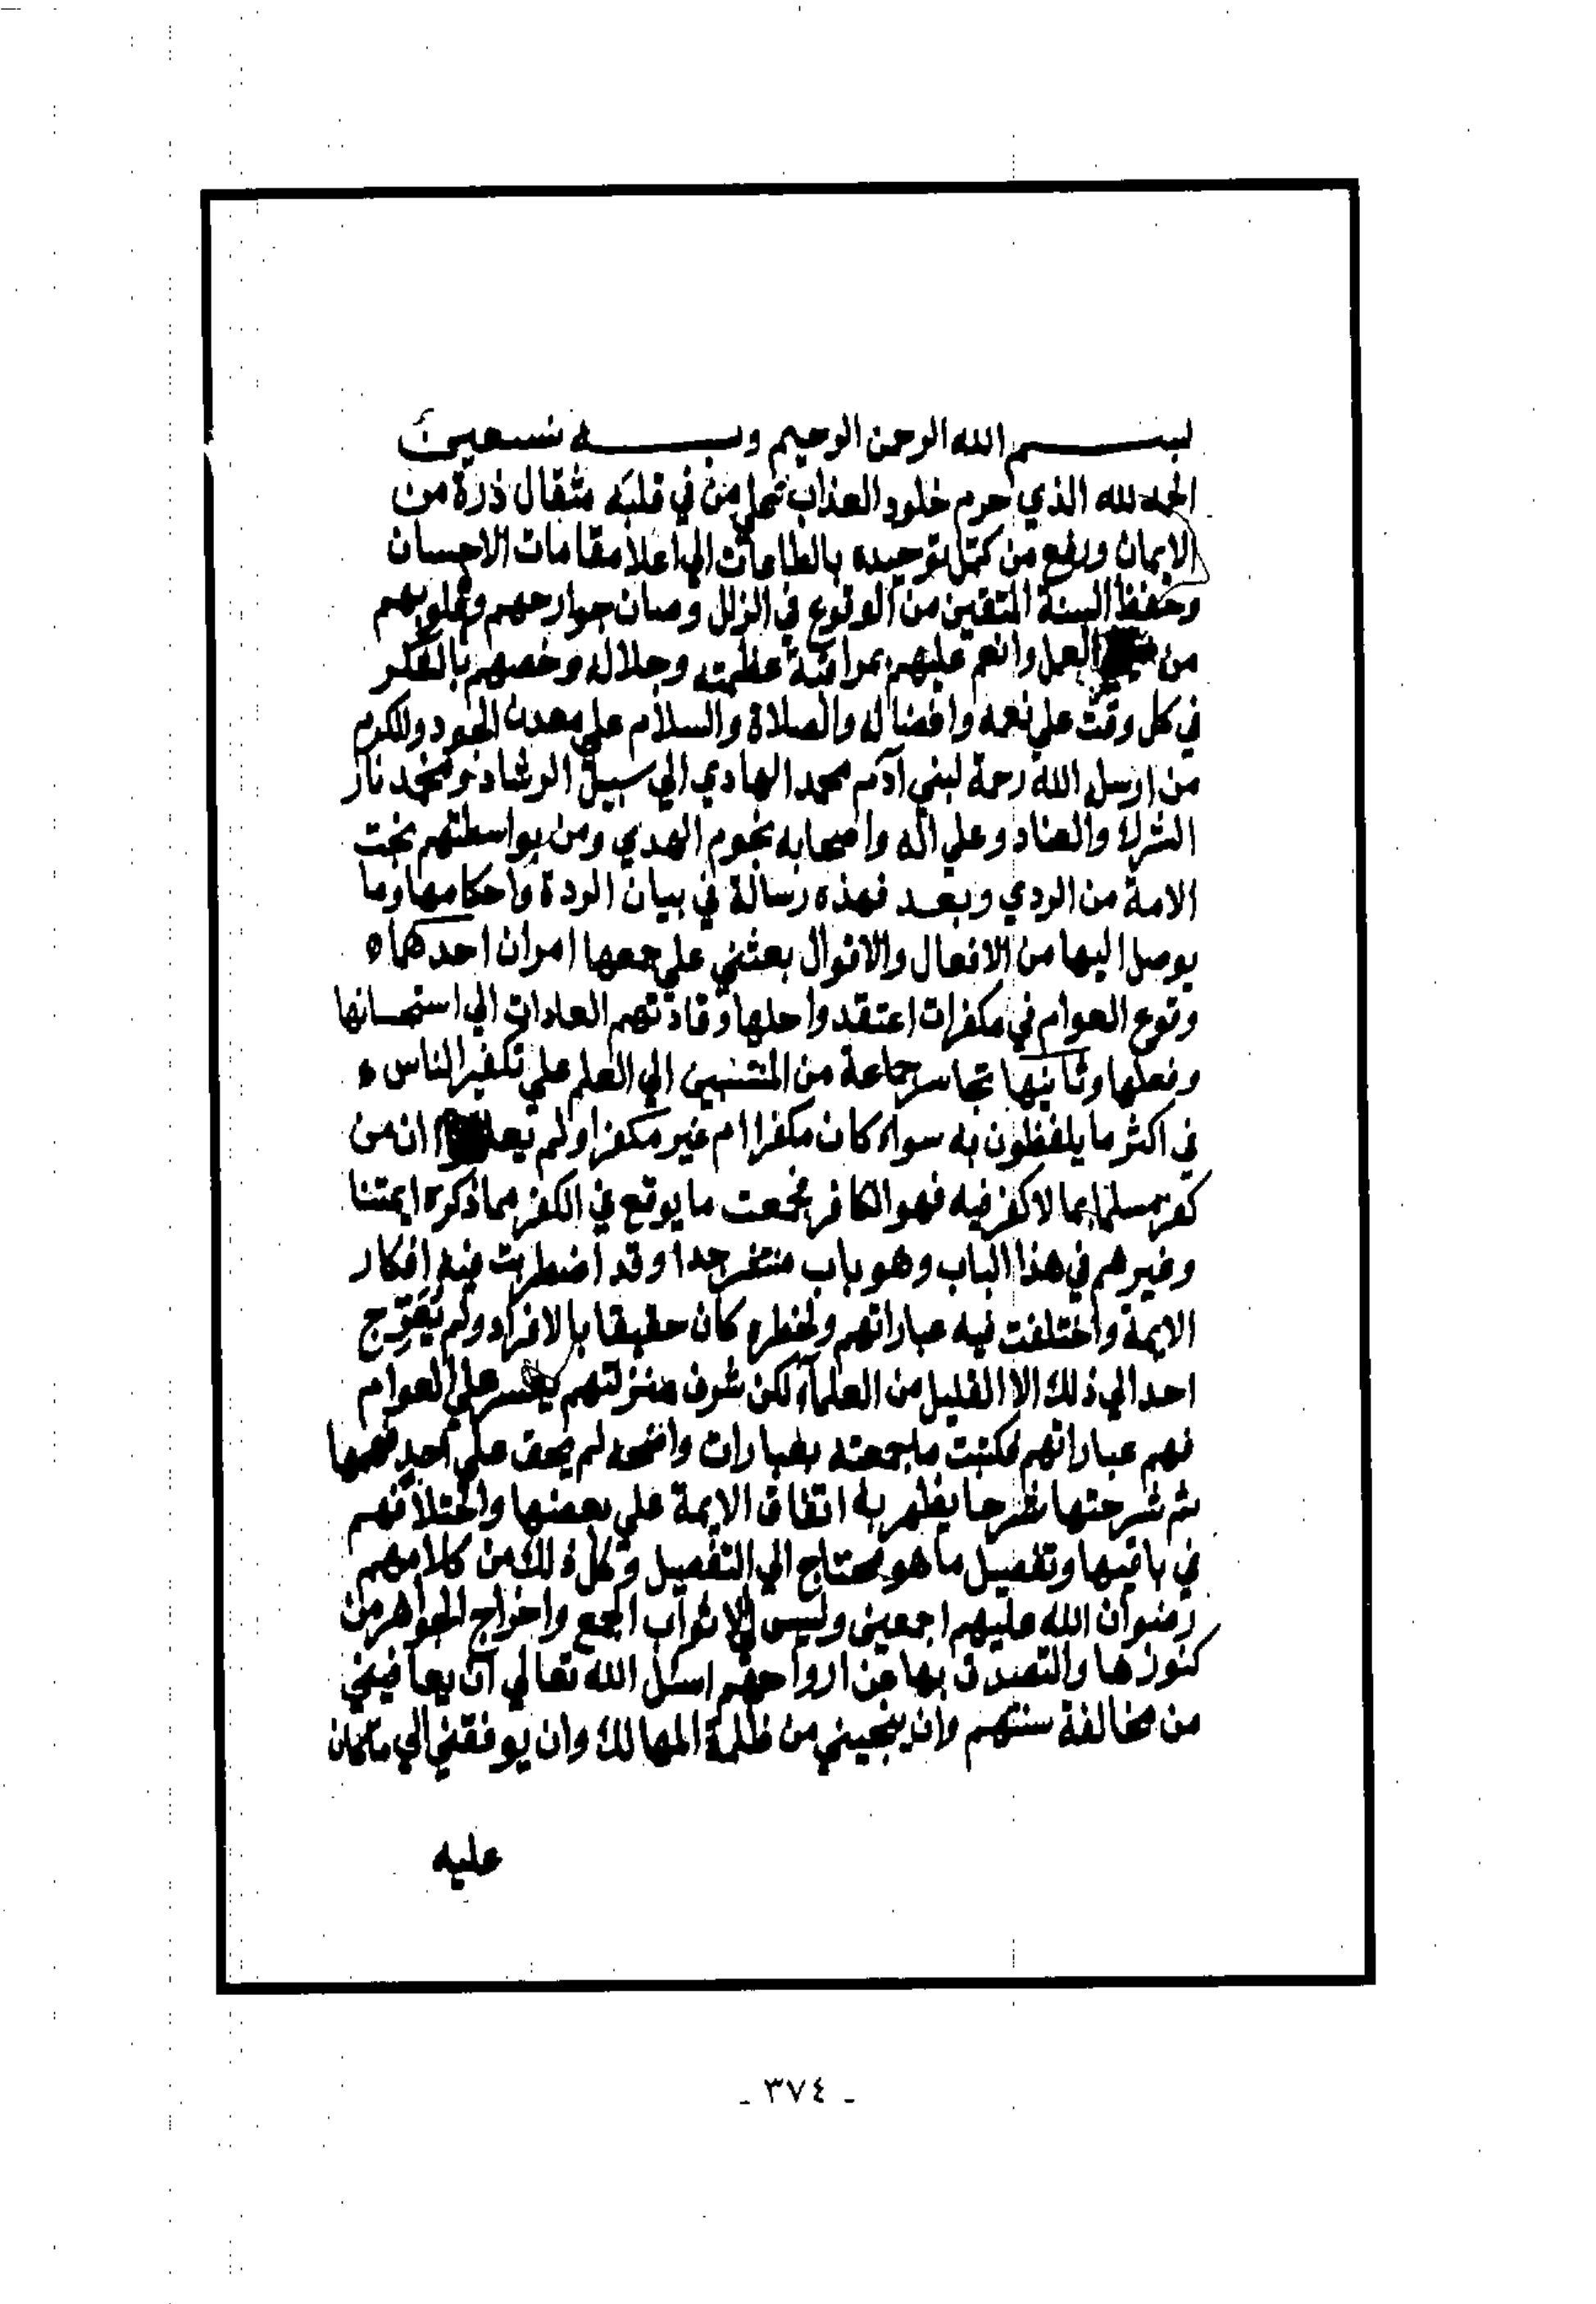 بسم الله الرحمن الرحيم وبه نستعين
الحمد لله الذي حرم خلود العذاب على من في قلبه مثقال ذرة من
الايمان ورفع من كمل توحيده بالطاعات الي اعلا مقامات الاحسان
وحفظ السنة المتقين من الوقوع في الزلل وصان جوارحهم وقلوبهم
من العمل وانعم عليهم بمراقبة عظمته وجلاله وخصهم بالفكر
في كل وقت علي نعمه وافضاله والصلاة والسلام علي معدن الجود والكرم
من ارسل الله رحمة لبني آدم محمد الهادي الي سبيل الرشاد ومخمد نار
الشرك والعناد وعلي اله واصحابه نجوم الهدي ومن بواسطتهم نجت
الامة من الردي وبعد فهذه رسالة في بيان الردة واحكامها وما
يوصل اليها من الافعال والاقوال بعثني علي جمعها امران احدهما
وقوع العوام في مكفرات اعتقدوا حلها وقادتهم العادات الي استحسانها
وفعلها وثانيها تجاسر جماعة من المنتسبين الي العلم علي تكفير الناس
في اكثر ما يلفظون به سواء كان مكفرا ام غير مكفر اولم ان من
كفر مسلما بما لا كفر فيه فهو الكافر فجمعت ما يوقع في الكفر مما ذكره ايمتنا
وغيرهم في هذا الباب وهو باب منتشر جدا وقد اضطربت فيه افكار
الايمة واختلفت فيه عباراتهم ولخطره كان حقيقا بالافراد ولم يعرج
احد الي ذلك الا القليل من العلماء لكن شرف منزلتهم يعسر علي العوام
فهم عباراتهم فكتبت ما جمعته بعبارات واضحه لم يخف علي احد فهمها
ثم شرحتها شرحا يظهر به اتفاق الايمة علي بعضها واختلافهم
في باقيها وتفصيل ما هو محتاج الي التفصيل وكل ذلك من كلامهم
رضوان الله عليهم اجمعين وليس لي الا ثواب الجمع واخراج الجواهر من
كنوزها والتصدق بها عن ارواحهم اسئل الله تعالي ان يعافيني
من مخالفة سنتهم وان ينجيني من ظلمة المهالك وان يوفقني الي ما كان
عليه
- ٣٧٤ -